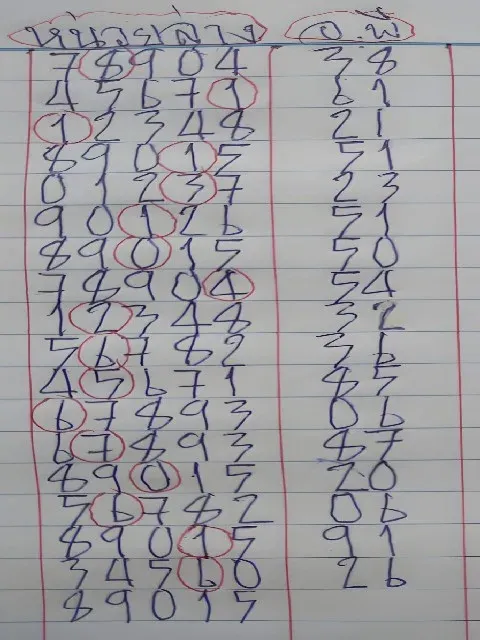 หน่วยล่าง อ.พี
7 8 9 0 4 38
4 5 6 7 1 61
1 2 3 4 8 21
8 9 0 1 5 51
0 1 2 3 7 23
9 0 1 2 6 51
8 9 0 1 5 50
7 8 9 0 4 54
1 2 3 4 8 32
5 6 7 8 2 36
4 5 6 7 1 85
6 7 8 9 3 06
6 7 8 9 3 87
8 9 0 1 5 20
5 6 7 8 2 06
8 9 0 1 5 91
3 4 5 6 0 26
8 9 0 1 5